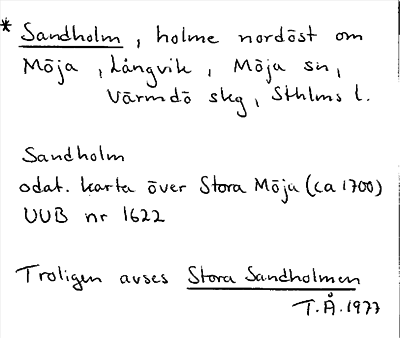 * Sandholm, holme nordöst om
Möja, Långvik, Möja sn,
Värmdö skg, Sthlms l.
Sandholm
odat. karta över Stora Möja (ca 1700)
UUB nr 1622
Troligen avses Stora Sandholmen
T.Å. 1977